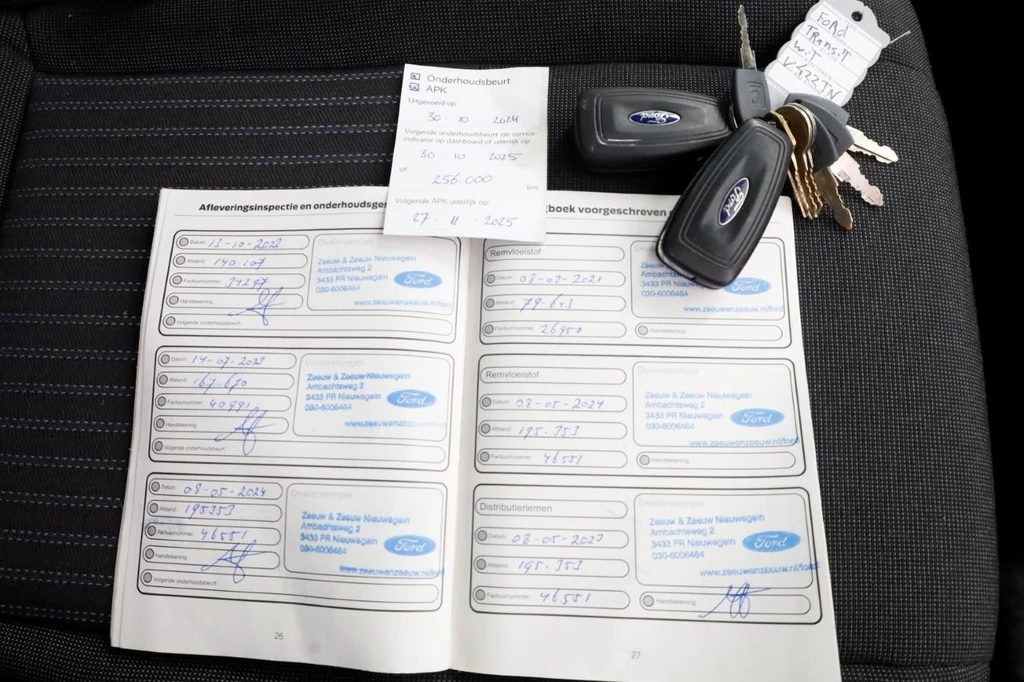 FORD
TRANSIT
WIT
Ford
Ford
Onderhoudsbeurt
APK
Uitgevoerd op:
30 - 10 - 2024
Volgende onderhoudsbeurt zie service-
indicator op dashboard of uiterlijk op:
30 - 10 - 2025
of:
256.000 km
Volgende APK uiterlijk op:
27 - 11 - 2025
Afleveringsinspectie en
Datum 13-10-2022
Afstand 140.107
Factuurnummer
Handtekening
Volgende onderhoudsbeurt:
Dealerstempel
Zeeuw & Zeeuw Nieuwegein
Ambachtsweg 2
3433 PR Nieuwegein
030-6006464
Ford
www.zeeuwenzeeuw.nl/ford
Datum 14-07-2023
Afstand 167-670
Factuurnummer 40991
Handtekening
Volgende onderhoudsbeurt:
Dealerstempel
Zeeuw & Zeeuw Nieuwegein
Ambachtsweg 2
3433 PR Nieuwegein
030-6006464
Ford
www.zeeuwenzeeuw.nl/ford
Datum 08-05-2024
Afstand 195353
Factuurnummer 46551
Handtekening
Volgende onderhoudsbeurt:
Dealerstempel
Zeeuw & Zeeuw Nieuwegein
Ambachtsweg 2
3433 PR Nieuwegein
030-6006464
Ford
www.zeeuwenzeeuw.nl/ford
26
voorgeschreven
Remvloeistof
Datum 08-02-2021
Afstand 79.643
Factuurnummer 26950
Handtekening
Zeeuw & Zeeuw
Ambachtsweg 2
3433 PR Nieuwegein
030-6006464
Ford
www.zeeuwenzeeuw.nl/ford
Remvloeistof
Datum 08-05-2024
Afstand 195-353
Factuurnummer 46551
Handtekening
Dealerstempel
Zeeuw & Zeeuw Nieuwegein
Ambachtsweg 2
3433 PR Nieuwegein
030-6006464
Ford
www.zeeuwenzeeuw.nl/ford
Distributieriemen
Datum
Afstand 195-353
Factuurnummer 46551
Handtekening
Dealerstempel
Zeeuw & Zeeuw Nieuwegein
Ambachtsweg 2
3433 PR Nieuwegein
030-6006464
Ford
www.zeeuwenzeeuw.nl/ford
27